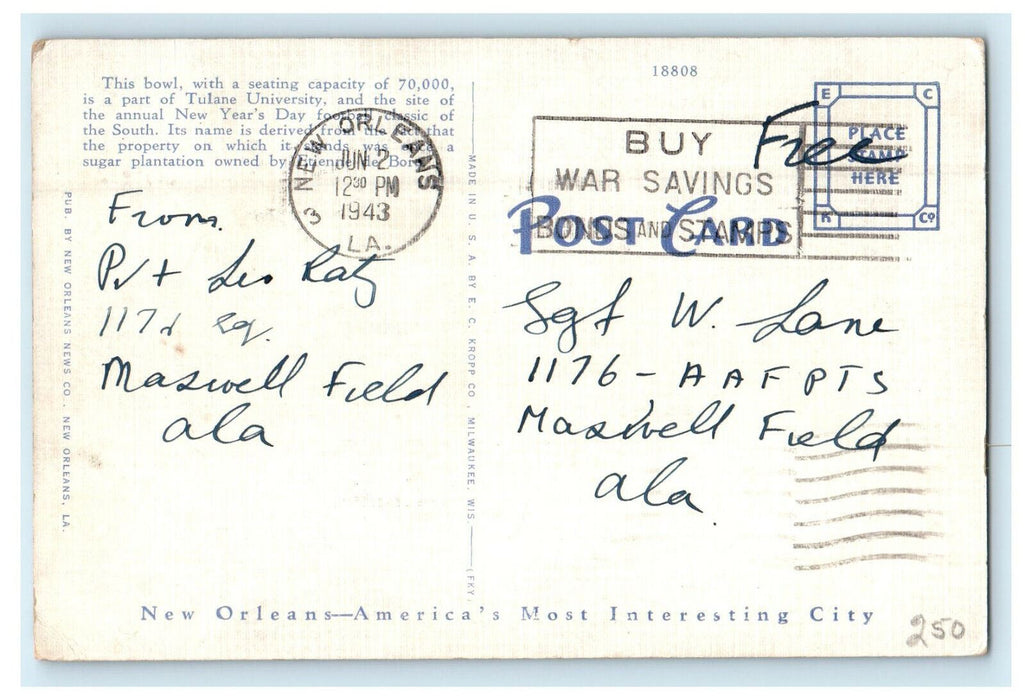 This bowl, with a seating capacity of 70,000,
is a part of Tulane University, and the site of
the annual New Year's Day football classic of
the South. Its name is derived from the fact that
the property on which it stands was once a
sugar plantation owned by Etienne de Bore.
NEW ORLEANS
3
JUN 2
12 30 PM
1943
LA.
18808
BUY
WAR SAVINGS
BONDS AND STAMPS
Free
E C
PLACE
STAMP
HERE
K Co
POST CARD
From
Pvt Leo Katz
Sq.
Maxwell Field
Ala
Sgt W. Lane
1176 - AAFPTS
Maxwell Field
Ala.
PUB. BY NEW ORLEANS NEWS CO., NEW ORLEANS, LA.
MADE IN U. S. A. BY E. C. KROPP CO., MILWAUKEE, WIS. (FKY.
New Orleans—America's Most Interesting City
250